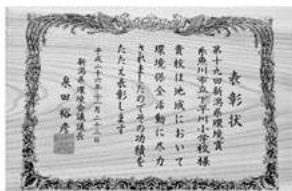 表彰状
第十九回新潟県環境賞
糸魚川市立下早川小学校様
貴校は地域において
環境保全活動に尽力
されましたのでその功績を
たたえ表彰します
平成二十六年十一月二十二日
新潟県環境会議議長
泉田裕彦